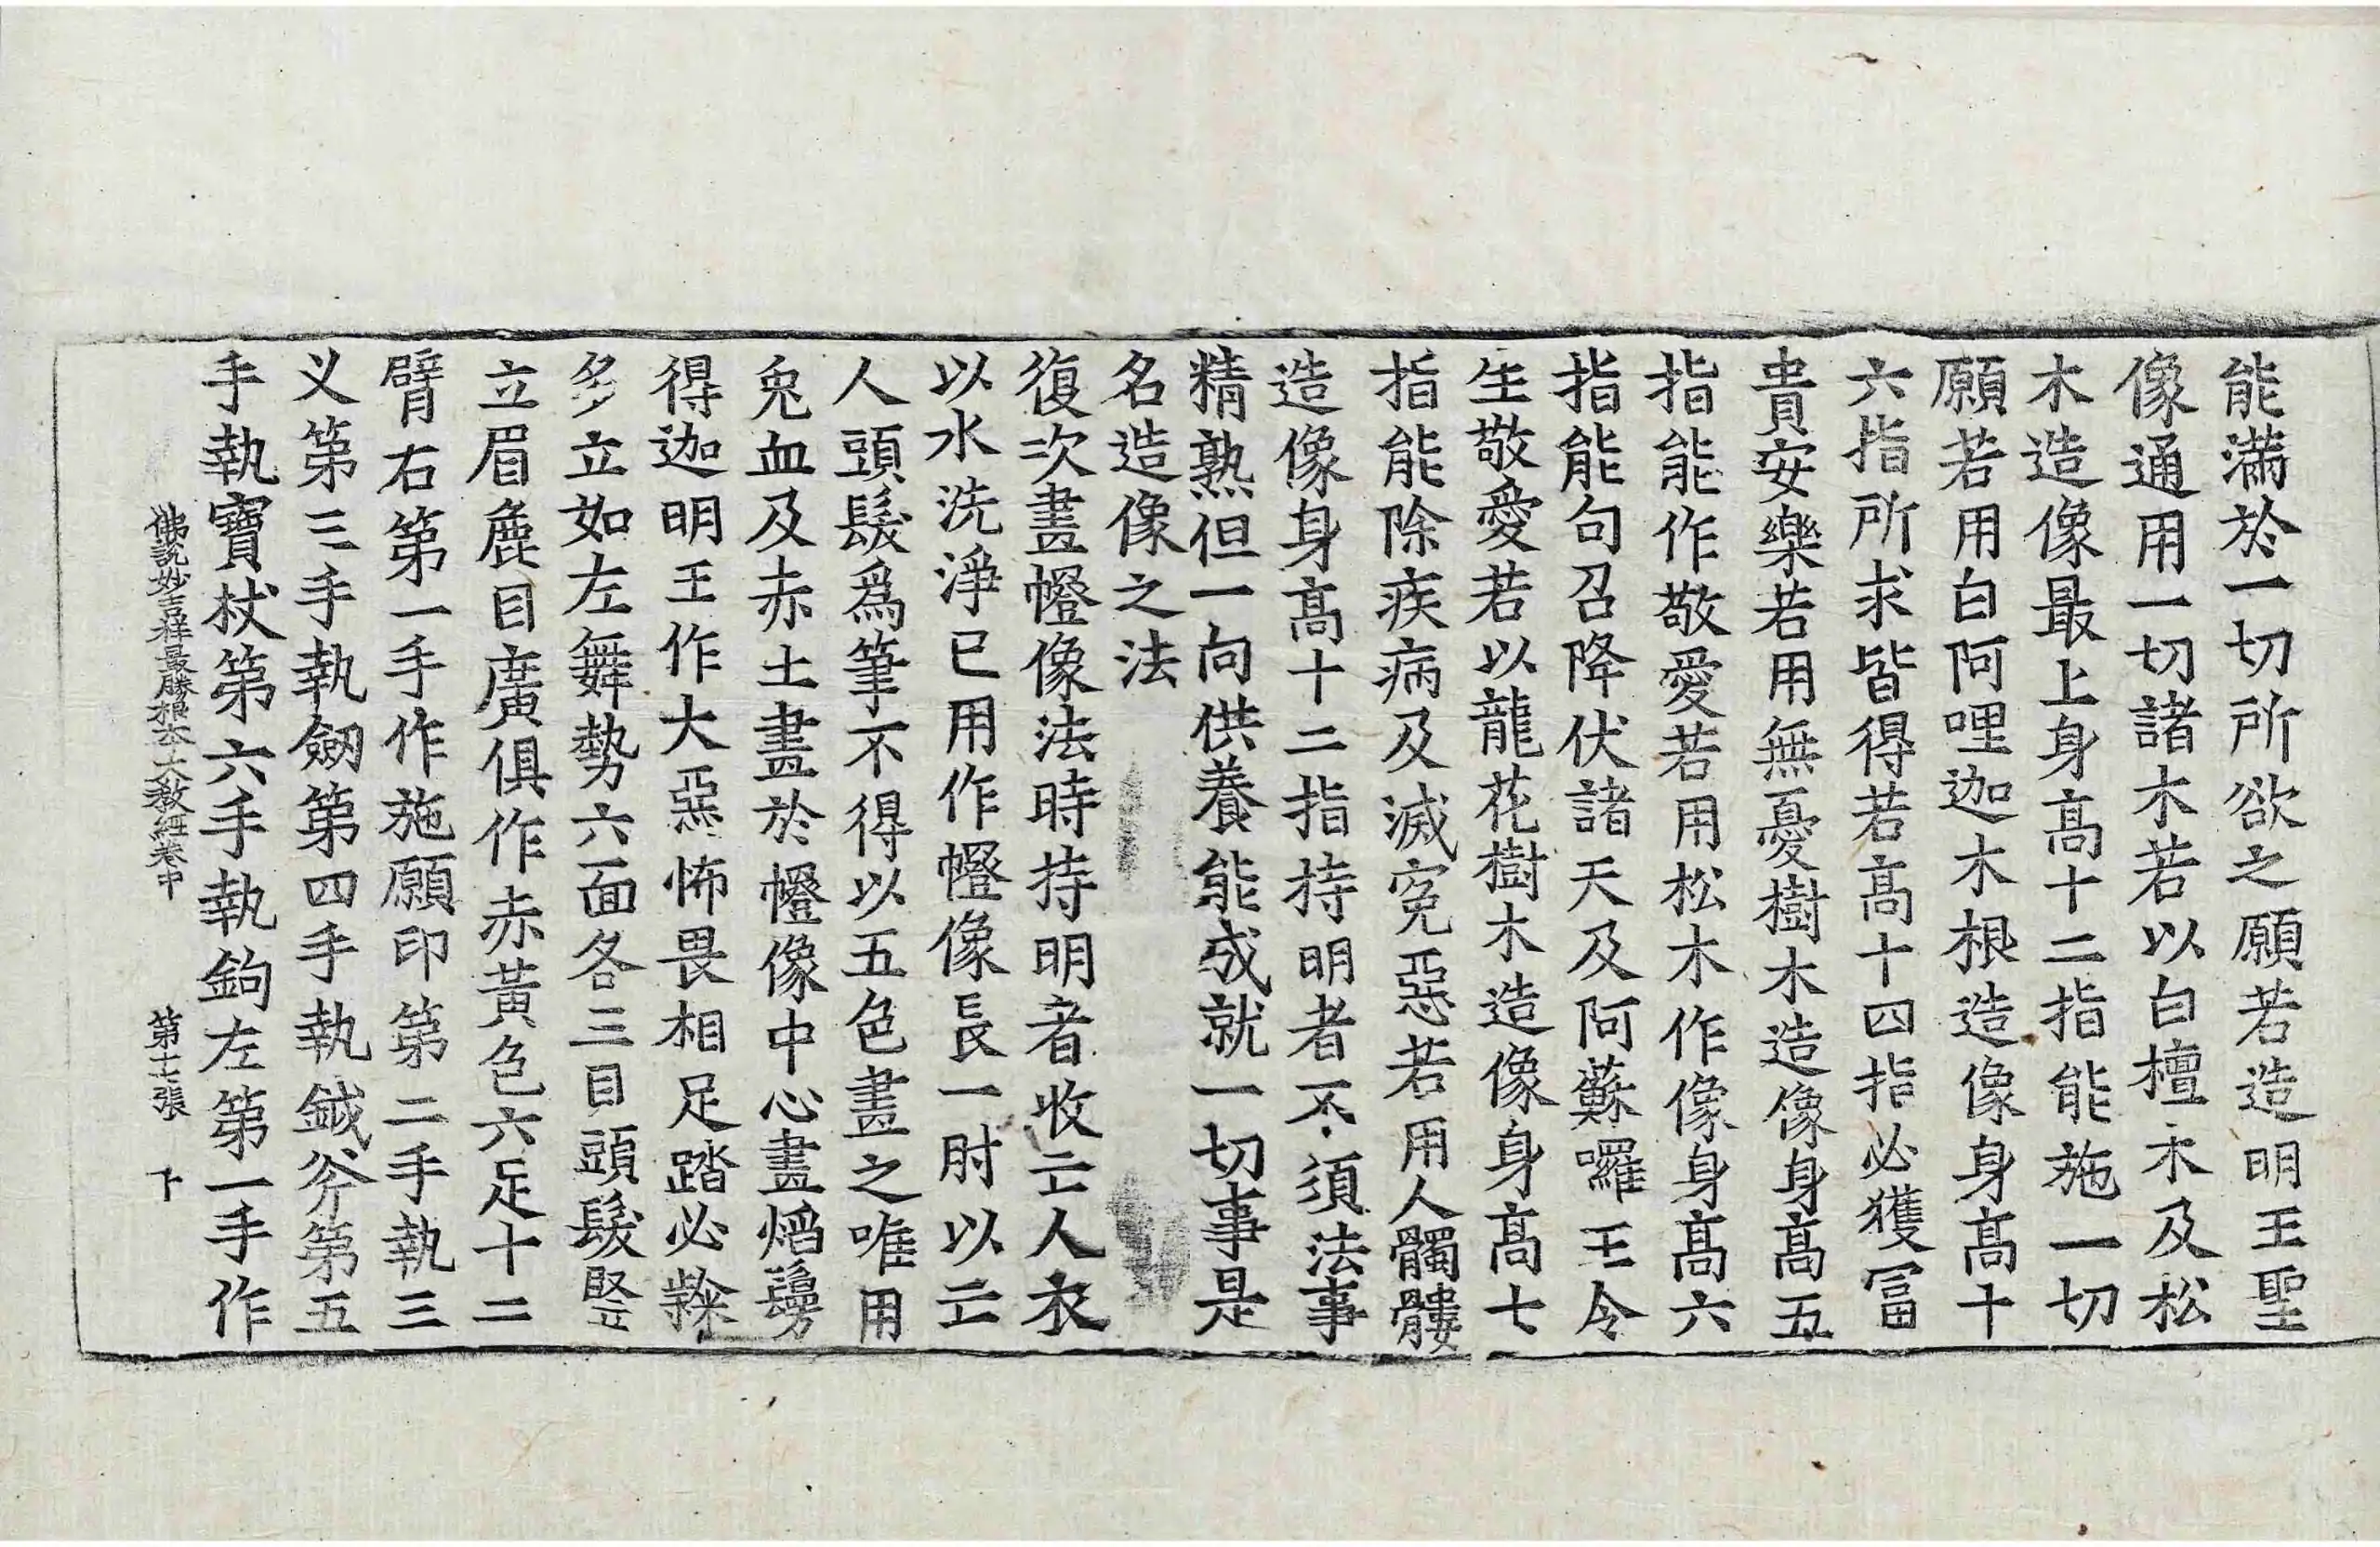 能滿於一切所欲之願若造明王聖
像通用一切諸木若以白檀木及松
木造像最上身髙十二指能施一切
願若用白阿哩迦木根造像身髙十
六指所求皆得若髙十四指必獲冨
貴安樂若用無憂樹木造像身髙五
指能作敬愛若用松木作像身髙六
指能句召降伏諸天及阿蘇囉王令
生敬愛若以龍花樹木造像身髙七
指能除疾病及滅寃惡若用人髑髏
造像身髙十二指持明者不須法事
精熟但一向供養能成就一切事是
名造像之法
復次畫㡧像法時持明者收亡人衣
以水洗淨已用作㡧像長一肘以亡
人頭髮爲筆不得以五色畫之唯用
兔血及赤土畫於㡧像中心畫焰鬘
得迦明王作大惡怖畏相足踏必㘑
多立如左舞勢六面各三目頭髮竪
立眉麁目廣俱作赤黃色六足十二
臂右第一手作施願印第二手執三
义第三手執劒第四手執鉞斧第五
手執寶杖第六手執鉤左第一手作
佛說妙吉祥最勝根本大教經卷中 第十七張 卞